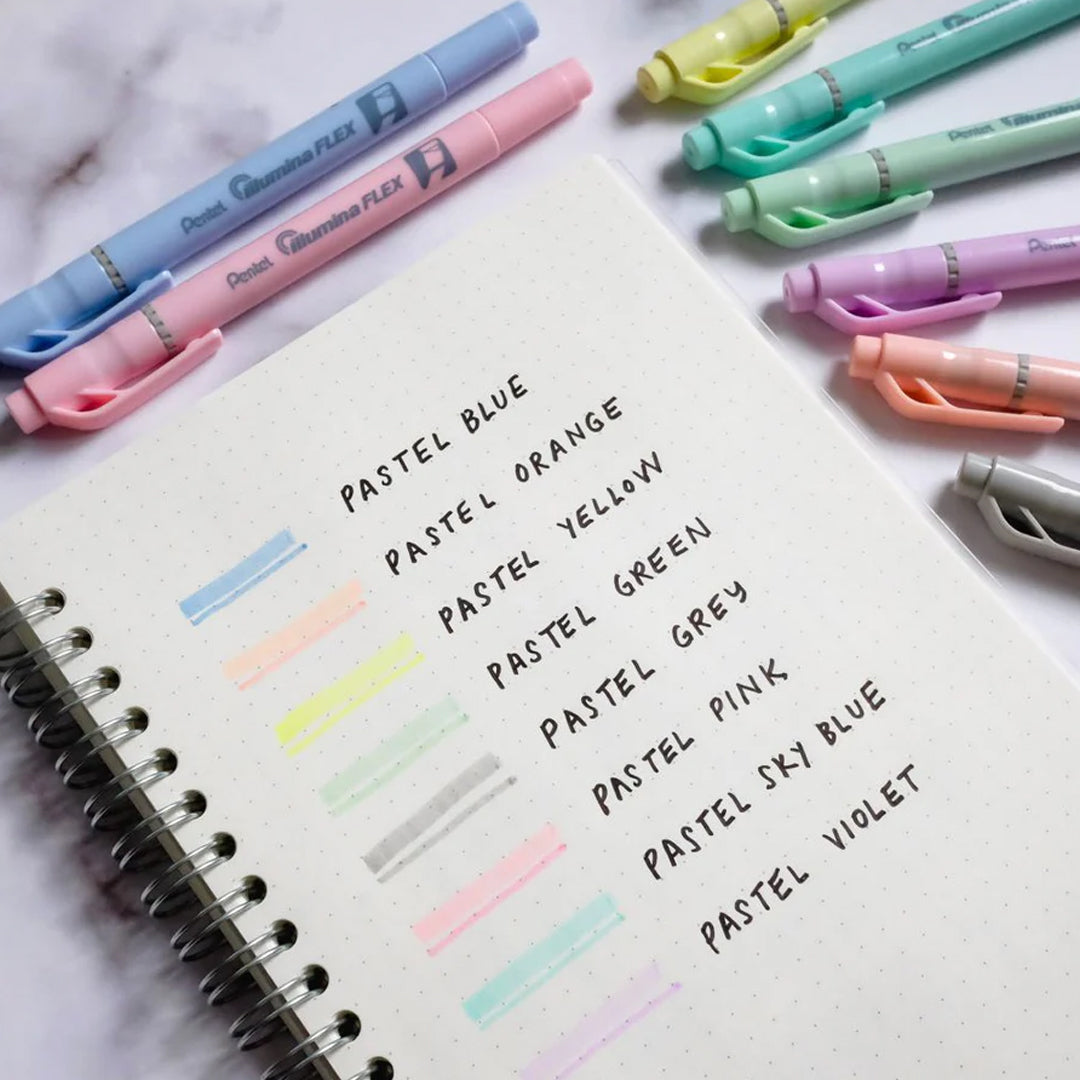 Pentel illumina FLEX
Pentel illumina FLEX
Pentel
Pentel illumina
Pentel
PASTEL BLUE
PASTEL ORANGE
PASTEL YELLOW
PASTEL GREEN
PASTEL GREY
PASTEL PINK
PASTEL SKY BLUE
PASTEL VIOLET